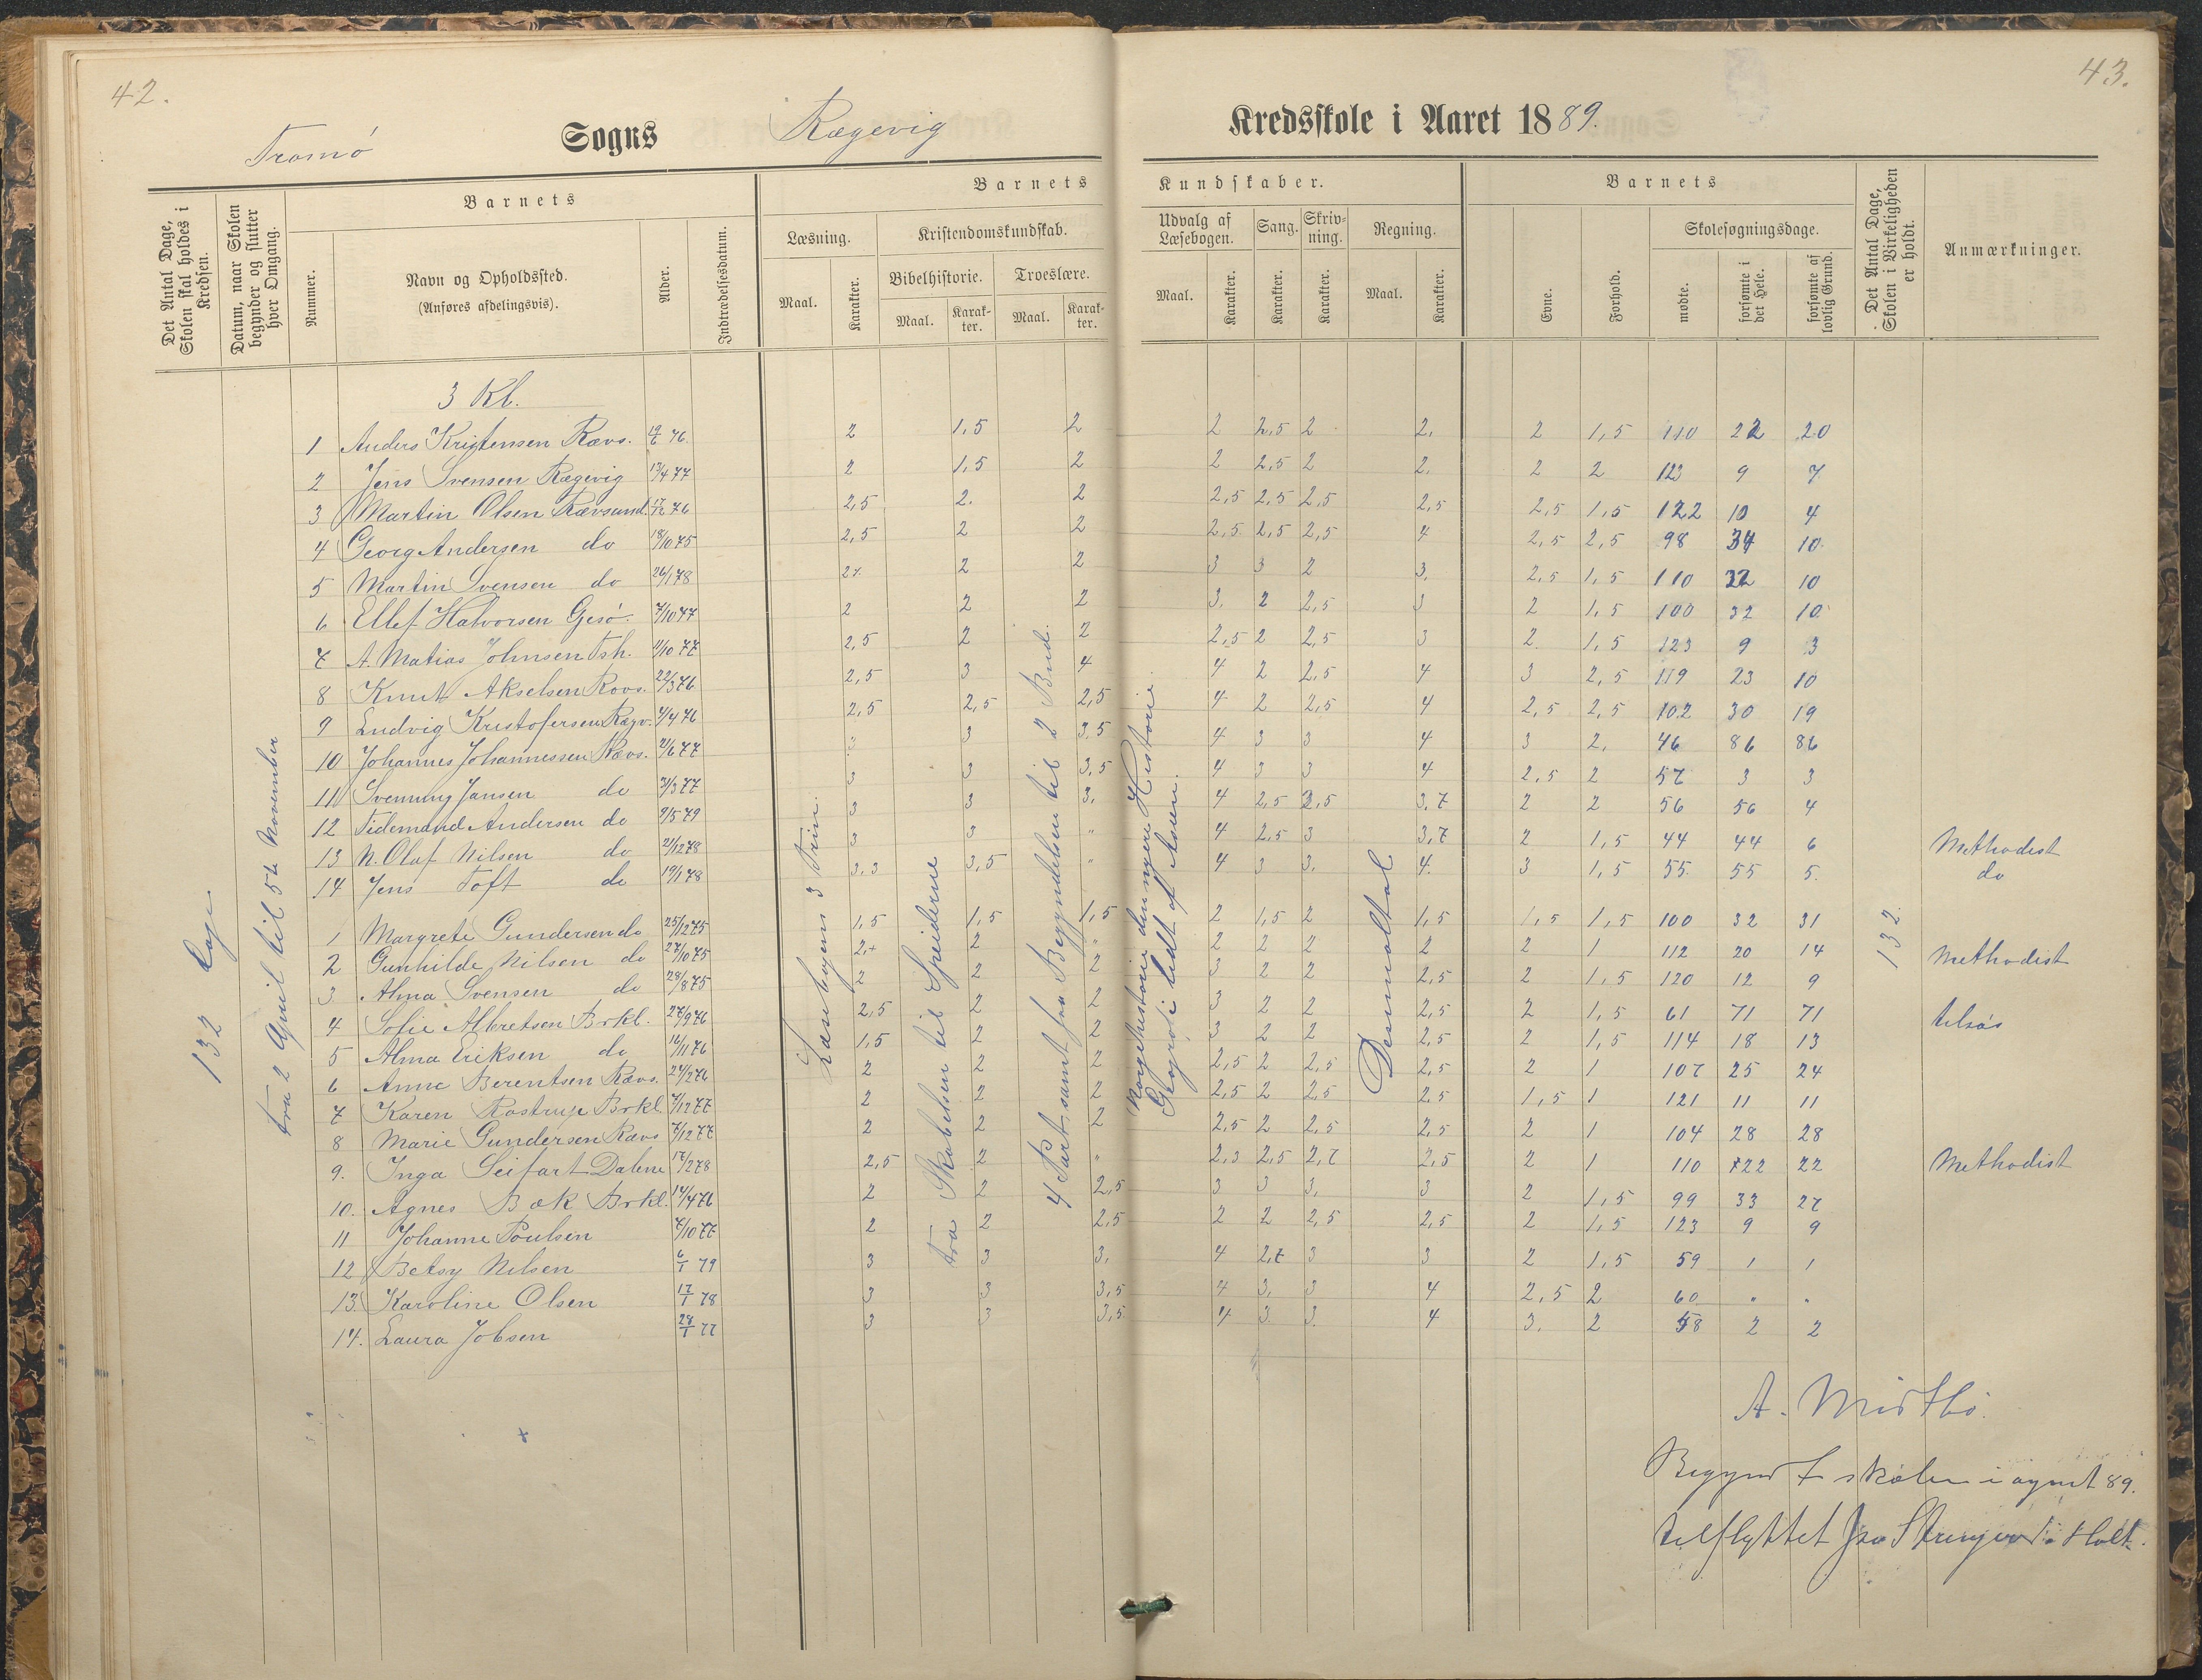 42.
43.
Tromø Sogns Rægevig Kredsskole i Aaret 1889.
Det Antal Dage, Skolen skal holdes i Kredsen.
Datum, naar Skolen begynder og slutter hver Omgang.
Barnets
Nummer.
Navn og Opholdssted.
(Anføres afdelingsvis).
Alder.
Indtrædelsesdatum.
Barnets Kundskaber.
Læsning.
Maal. Karakter.
Kristendomskundskab.
Bibelhistorie. Troeslære.
Maal. Karakter. Maal. Karakter.
Udvalg af Læsebogen.
Maal. Karakter.
Sang.
Karakter.
Skrivning.
Karakter.
Regning.
Maal. Karakter.
Barnets
Evne. Forhold.
Skolesøgningsdage.
mødte. forsømte i det Hele. forsømte af lovlig Grund.
Det Antal Dage, Skolen i Virkeligheden er holdt.
Anmærkninger.
132 Dage
fra 2 April til 5te November
Læsebogens 3 Trin.
fra Skabelsen til Speiderne
4 Part samt fra Begyndelsen til 2 Bud.
Norgeshistorie den nyere Historie.
Geografi lidt af Asien.
Desimaltal
132.
3 Kl.
1 Anders Kristensen Rævs. 19/6 76. 2 1,5 2 2 2,5 2 2. 2 1,5 110 22 20
2 Jens Svensen Rægevig 13/4 77 2 1,5 2 2 2,5 2 2. 2 2 123 9 7
3 Martin Olsen Rævsund. 17/12 76 2,5 2. 2 2,5 2,5 2,5 2,5 2,5 1,5 122 10 4
4 Georg Andersen do 18/10 75 2,5 2 2 2,5 2,5 2,5 4 2,5 2,5 98 34 10
5 Martin Svensen do 26/1 78 2 2 3 3 2 3. 2,5 1,5 110 22 10
6 Ellef Halvorsen Gjesø. 7/10 77 2 2 2 3. 2 2,5 3 2 1,5 100 32 10
7 A. Matias Johnsen Tsh. 11/10 77 2,5 2 2 2,5 2 2,5 3 2. 1,5 123 9 3
8 Knut Akselsen Rævs. 22/3 76 2,5 3 4 4 2 2,5 4 3 2,5 119 23 10
9 Ludvig Kristofersen Rægv. 4/4 76 2,5 2,5 2,5 4 2 2,5 4 2,5 2,5 102 30 19
10 Johannes Johannessen Rævs. 2/6 77 3 3,5 4 3 3 4 3 2. 46 86 86
11 Svenning Jansen do 31/3 77 3 3 3,5 4 3 3 4 2,5 2 57 3 3
12 Tidemand Andersen do 9/5 79 3 3 3. 4 2,5 2,5 3,7 2 2 56 56 4
13 N. Olaf Nilsen do 21/12 78 3 3 " 4 2,5 3 3,7 2 1,5 44 44 6 Methodist
14 Jens Toft do 19/1 78 3,3 3,5 " 4 3 3. 4. 3 1,5 55 55 5. do
1 Margrete Gundersen do 25/12 75 1,5 1,5 1,5 2 1,5 2 1,5 1,5 1,5 100 32 31
2 Gunhilde Nilsen do 27/10 75 2,+ 2 " 2 2 2 2 2 1 112 20 14 Methodist
3 Alma Svensen do 28/8 75 2 2 2 3 2 2 2,5 2 1,5 120 12 9
4 Sofie Albretsen Brkl. 27/9 76 2,5 2 2 3 2 2 2,5 2 1,5 61 71 71 tilsøs
5 Alma Eriksen do 16/11 76 1,5 2 2 3 2 2 2,5 2 1,5 114 18 13
6 Anne Berentsen Rævs. 24/2 76 2 2 2 2,5 2 2,5 2,5 2 1 107 25 24
7 Karen Rostrup Brkl. 7/12 77 2 2 2 2,5 2 2,5 2,5 1,5 1 121 11 11
8 Marie Gundersen Rævs 7/12 77 2 2 2 2,5 2 2,5 2,5 2 1 104 28 28
9. Inga Seifart Dalene 17/2 78 2,5 2 " 2,3 2,5 2,7 2,5 2 1 110 22 22 Methodist
10. Agnes Bøk Brkl. 14/4 76 2 2 2,5 3 3 3. 3 2 1,5 99 33 27
11 Johanne Poulsen 7/10 77 2 2 2,5 2 2 2,5 2,5 2 1,5 123 9 9
12 Betsy Nilsen 6/1 79 3 3 3. 4 2,7 3 3 2 1,5 59 1 1
13. Karoline Olsen 17/1 78 3 3 3,5 4 3. 3 4 2,5 2 60 " "
14. Laura Jobsen 28/1 77 3 3 3,5. 4 3. 3. 4 3. 2 58 2 2
A. Midtbø.
Begyndt skolen i august 89.
tilflyttet fra Strengereid i Holt.